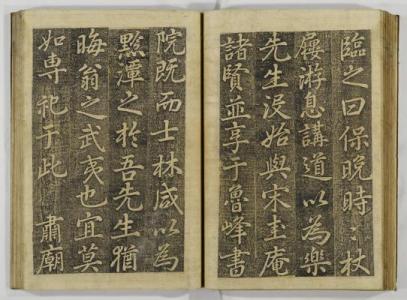 臨之曰保晩時〻杖
屨游息講道以為樂
先生没始與宋圭庵
諸賢並享于魯峰書
院既而士林咸以為
黙潭之於吾先生猶
晦翁之武夷也宜莫
如専祀于此 肅廟